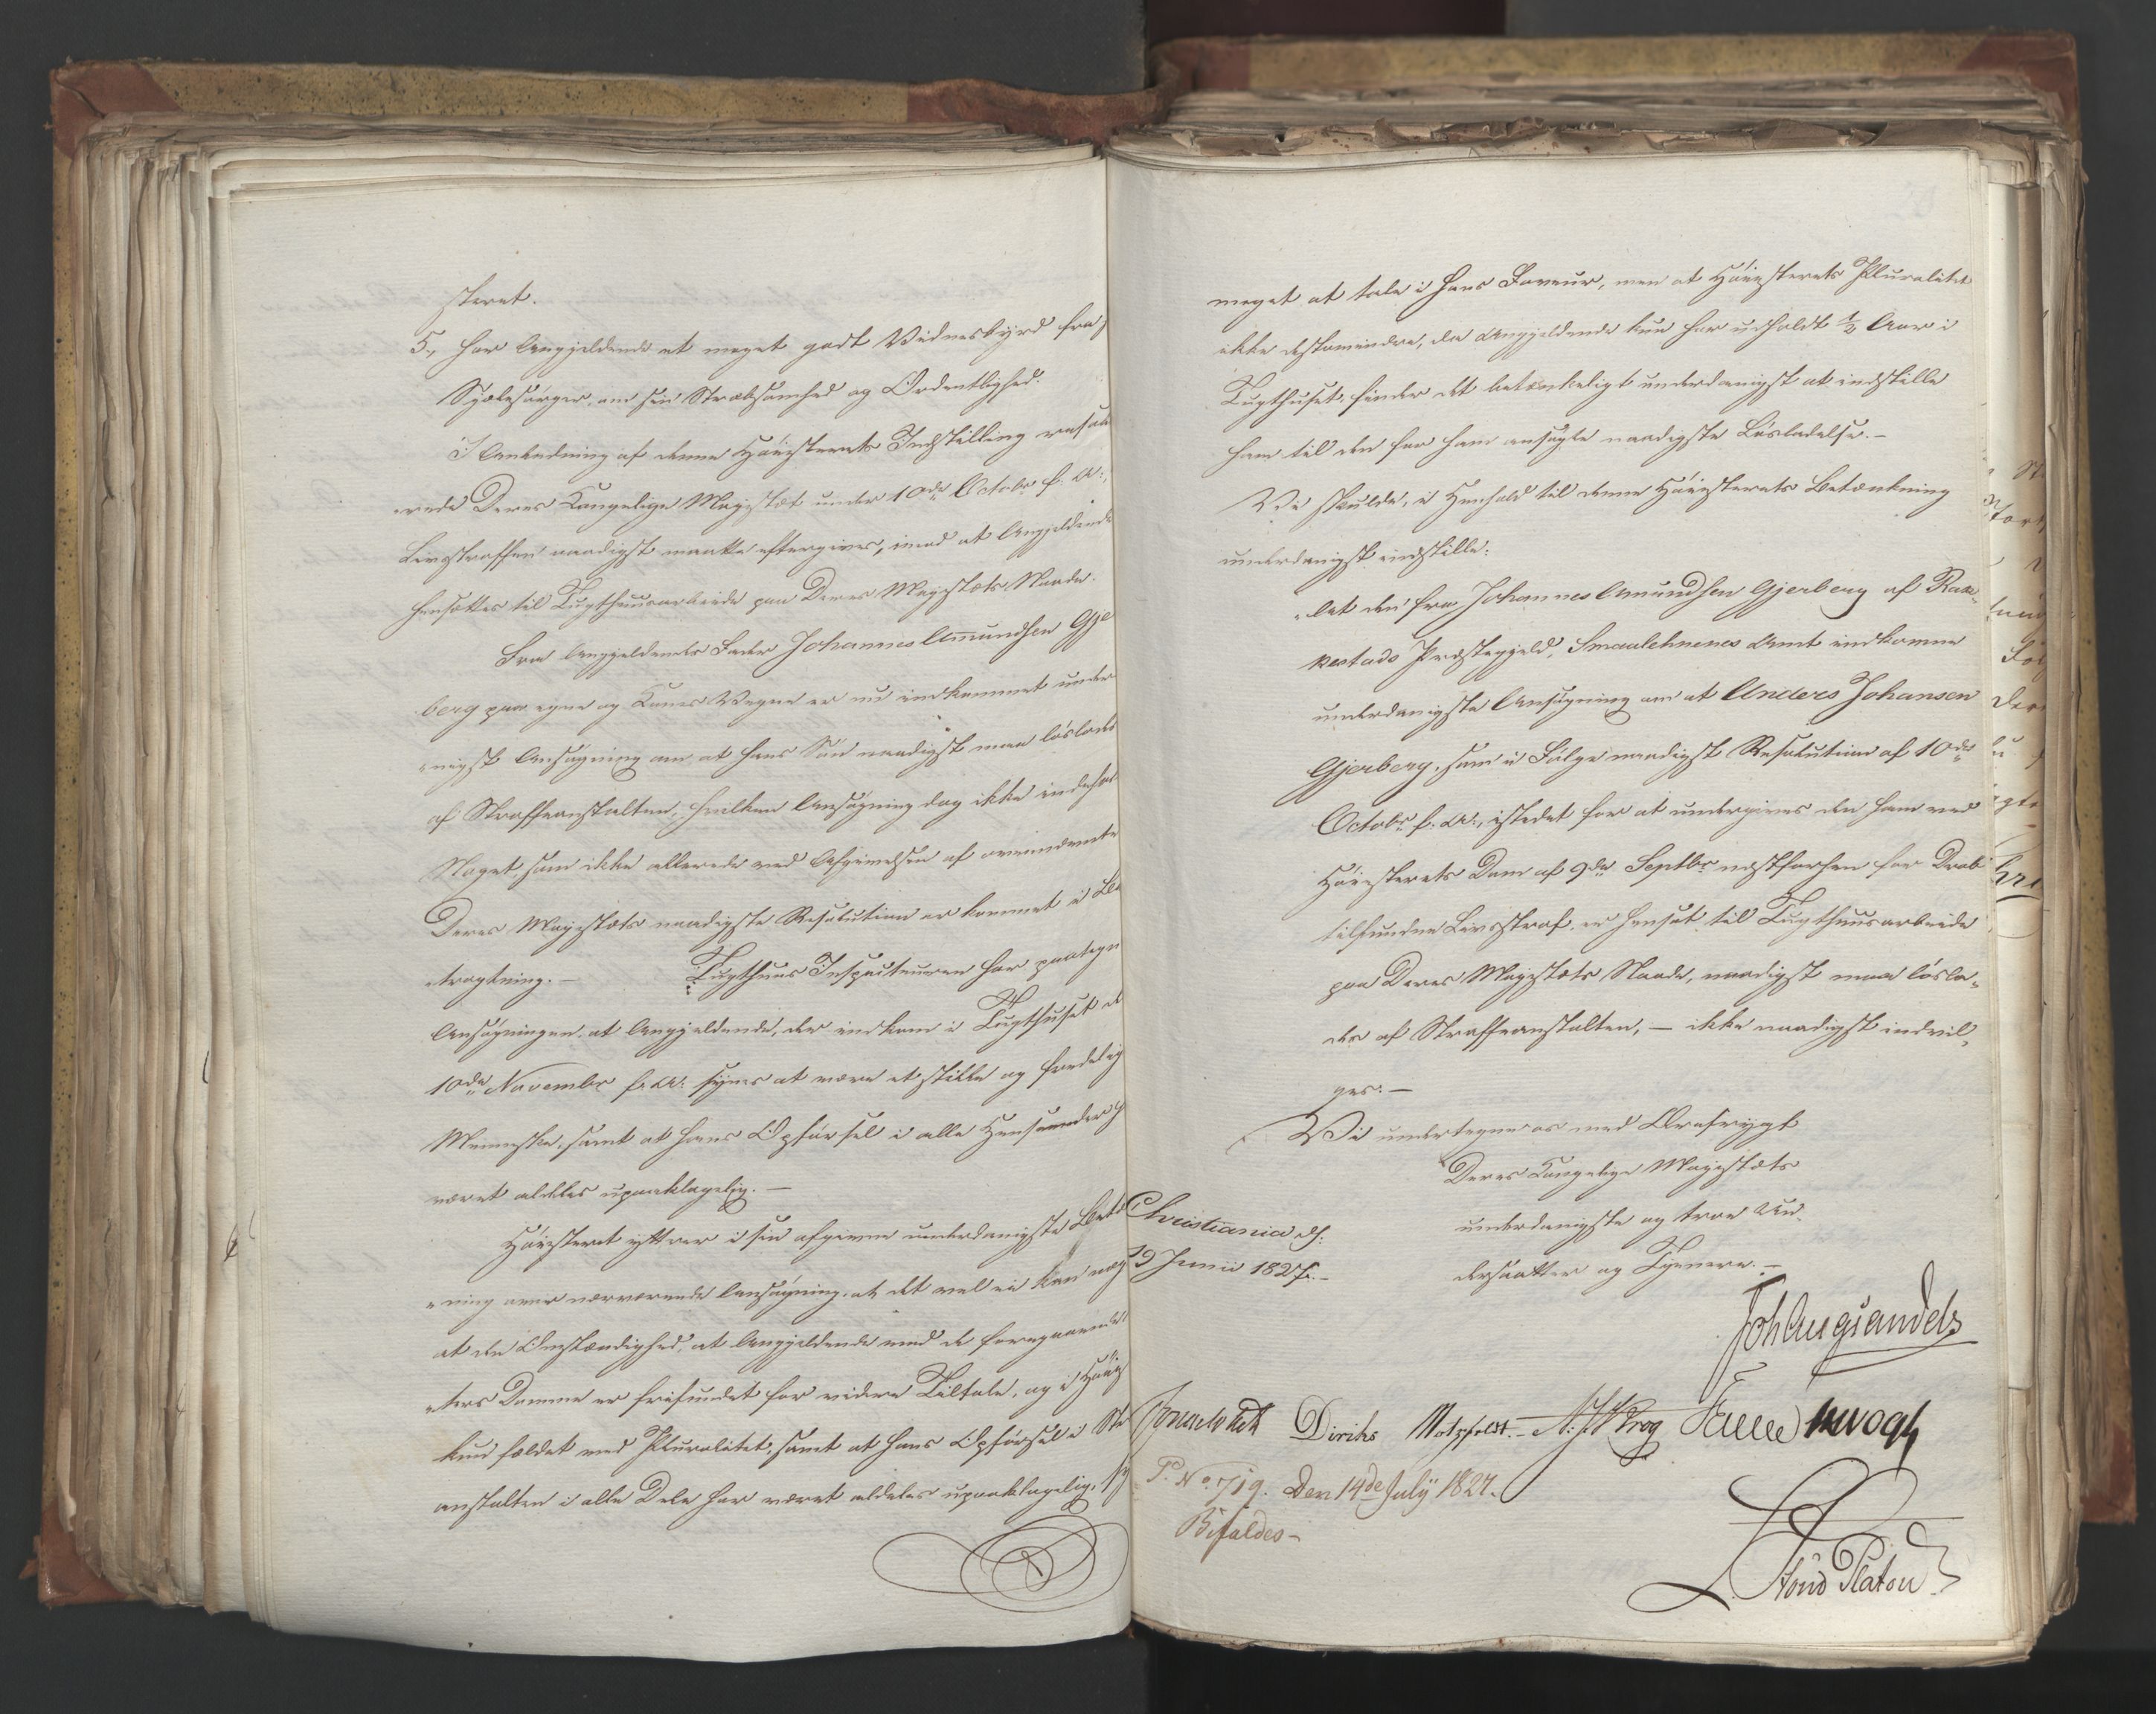 steret.
5, har Angjeldende et meget godt Vidnesbyrd fra
Sjælesørger, om sin Stræbsomhed og Ordentlighed.
I Anledning af denne Høiesterets Indstilling resol-
verede Deres Kongelige Majestæt under 10de Octobr f. A:,
Livsstraffen naadigst maatte eftergives, imod at Angjeldende
hensættes til Tugthuusarbeide paa Deres Majestæts Naade.
Fra Angjeldendes Fader Johannes Amundsen Gje
berg paa egne og Kones Vegne er nu indkommet under-
nigst Ansøgning om, at hans Søn naadigst maa løslades
af Straffeanstalten, hvilken Ansøgning dog ikke indehol
Noget, som ikke allerede ved Afgivelsen af ovenmeldte
Deres Majestæts naadigste Resolution er kommet i Be
tragtning. – Tugthuus Inspecteuren har paategn
Ansøgningen, at Angjeldende, der indkom i Tugthuset d
10de Novembr f. A: synes at være et stille og fredelig
Menneske, samt at hans Opførsel i alle Henseender h
været aldeles upaaklagelig. –
Høiesteret yttrer i sin afgivne underdanigste Betæ
ning over nærværende Ansøgning, at det vel ei kan næg
at den Omstændighed, at Angjeldende ved de foregaaende
ters Domme er frifundet for videre Tiltale, og i Høies
kun fældet med Pluralitet, samt at hans Opførsel i Str
anstalten i alle Dele har været aldeles upaaklagelig, sy
meget at tale i hans Faveur, men at Høiesterets Pluralitet
ikke destomindre, da Angjeldende kun har udholdt ½ Aar i
Tugthuset, finder det betænkeligt underdanigst at indstille
ham til den for ham ansøgte naadigste Løsladelse. –
Vi skulde, i Henhold til denne Høiesterets Betænkning
underdanigst indstille:
"At den fra Johannes Amundsen Gjerberg af Rak-
kestads Præstegjeld, Smaalehnenes Amt indkomne
underdanigste Ansøgning om at Anders Johansen
Gjerberg, som i Følge naadigst Resolution af 10de
Octobr f. A:, istedet for at undergives den ham ved
Høiesterets Dom af 9de Septbr næstforhen for Drab
tilfundne Livsstraf, er hensat til Tugthuusarbeide
paa Deres Majestæts Naade, naadigst maa løsla-
des af Straffeanstalten, – ikke naadigst indvil-
ges. –
Vi undertegne os med Ærefrygt
Deres Kongelige Majestæts
underdanigste og troe Un-
dersaatter og Tjenere. –
Christiania d:
19 Junii 1827. –
Joh Aug Sandels
Jonas Collett Diriks Motzfeldt. – A. J. V. Krog Fasting JHVogt
P. No. 719. Den 14de July 1827.
Bifaldes –
Stoud Platou